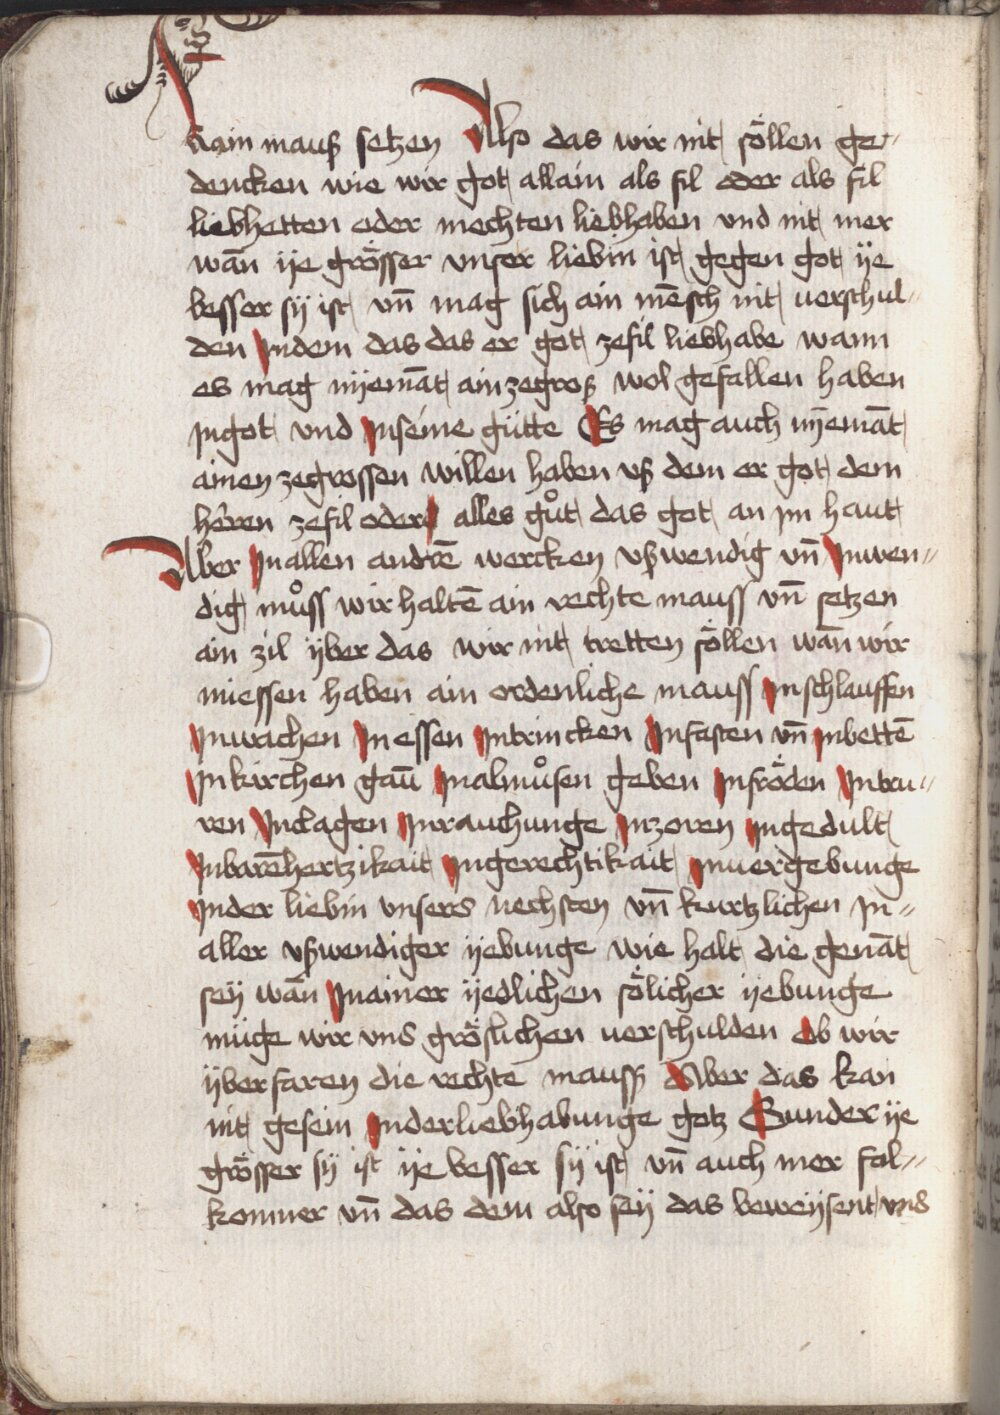 kain mauß setzen Also das wir nit söllen ge-
dencken wie wir got allain als fil oder als fil
liebhetten oder mechten liebhaben vnd nit mer
wān ije grösser vnser liebin ist gegen got ije
besser sÿ ist vn̄ mag sich ain mēsch nit uerschul-
den Jndem das das er got zefil liebhabe wann
es mag nÿemāt ain zegroß wol gefallen haben
jngot vnd Jnseine gütte Es mag auch nÿemāt
ainen zegrossen willen haben vß dem er got dem
herren zefil oder alles gůt das got an jm haut
Aber Jn allen andrē wercken vßwendig vn̄ Jnwen-
dig můss wir haltē ain rechte mauss vn̄ setzen
ain zil ÿber das wir nit tretten söllen wān wir
miessen haben ain ordenliche mauss Jnschlauffen
Jnwachen Jn essen Jntrincken Jnfasten vn̄ Jnbettē
Jnkirchen gaū Jnalmůsen geben Jnfröden Jntru-
ren Jnclagen Jnrauchunge Jnzoren Jngedult
Jnbarēhertzikait Jngerechtikait Jnuergebunge
Jnder liebin vnsers nechsten vn̄ kurtzlichen jn-
aller vßwendiger ÿebunge wie halt die genāt
seÿ wān Jnainer ÿedlichen sölicher ÿebunge
müge wir vns gröslichen uerschulden Ob wir
ÿberfaren die rechte mauss Aber das kan
nit gesein Jnderliebhabunge gotz Sunder ije
grösser sÿ ist ije besser sÿ ist vn̄ auch mer fol-
komner vn̄ das dem also seÿ das beweÿsent vns